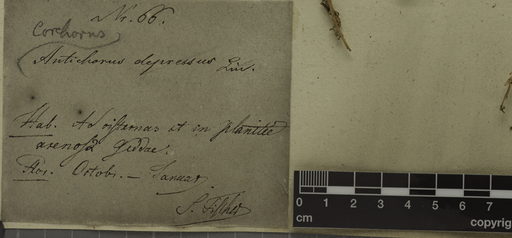 Nr. 66.
Corchorus
Antichorus depressus Lin.
Hab. Ad cisternas et in planitie
arenosa Geddae.
Flor. Octobr. — Januar.
S. Fischer
0 1 2 3 4 5 6 7
cm
copyrig